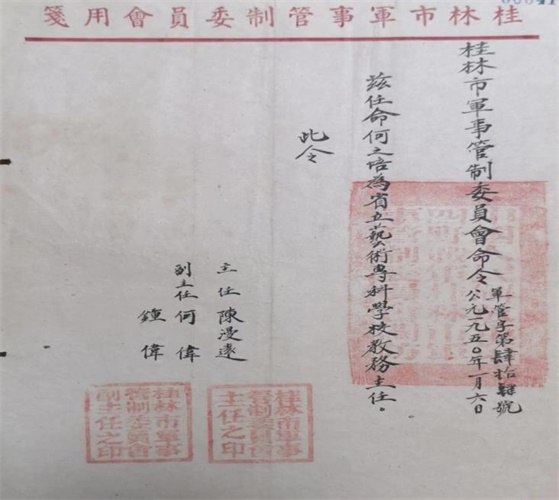 桂林市軍事管制委員會用箋
桂林市軍事管制委員會命令
軍管字第肆拾肆號
公元一九五〇年一月六日
茲任命何之培為省立藝術專科學校教務主任。
此令
主任 陳漫遠
副主任 何偉
鍾偉
桂林市軍事管制委員會主任之印
桂林市軍事管制委員會副主任之印